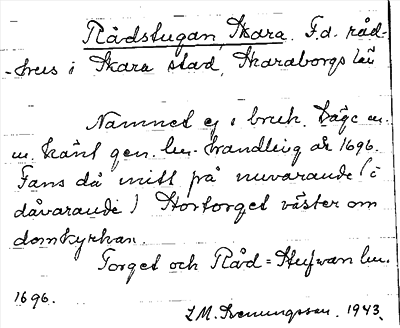 Rådstugan, Skara. F.d. råd-
-hus i Skara stad, Skaraborgs län
Namnet ej i bruk. Läge m.
m. känt gen. hm-handling år 1696.
Fans då mitt på nuvarande (i
dåvarande) Stortorget väster om
domkyrkan.
Torget och Råd=Stufwan hm.
1696.
L M. Svenungsson. 1943.